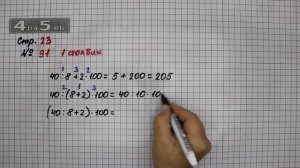 4DO5.RU
Стр. 23
№ 91 1 столбик
1 3 2
40 : 8 + 2 · 100 = 5 + 200 = 205
2 1 3
40 : (8 + 2) · 100 = 40 : 10 · 10
(40 : 8 + 2) · 100 =